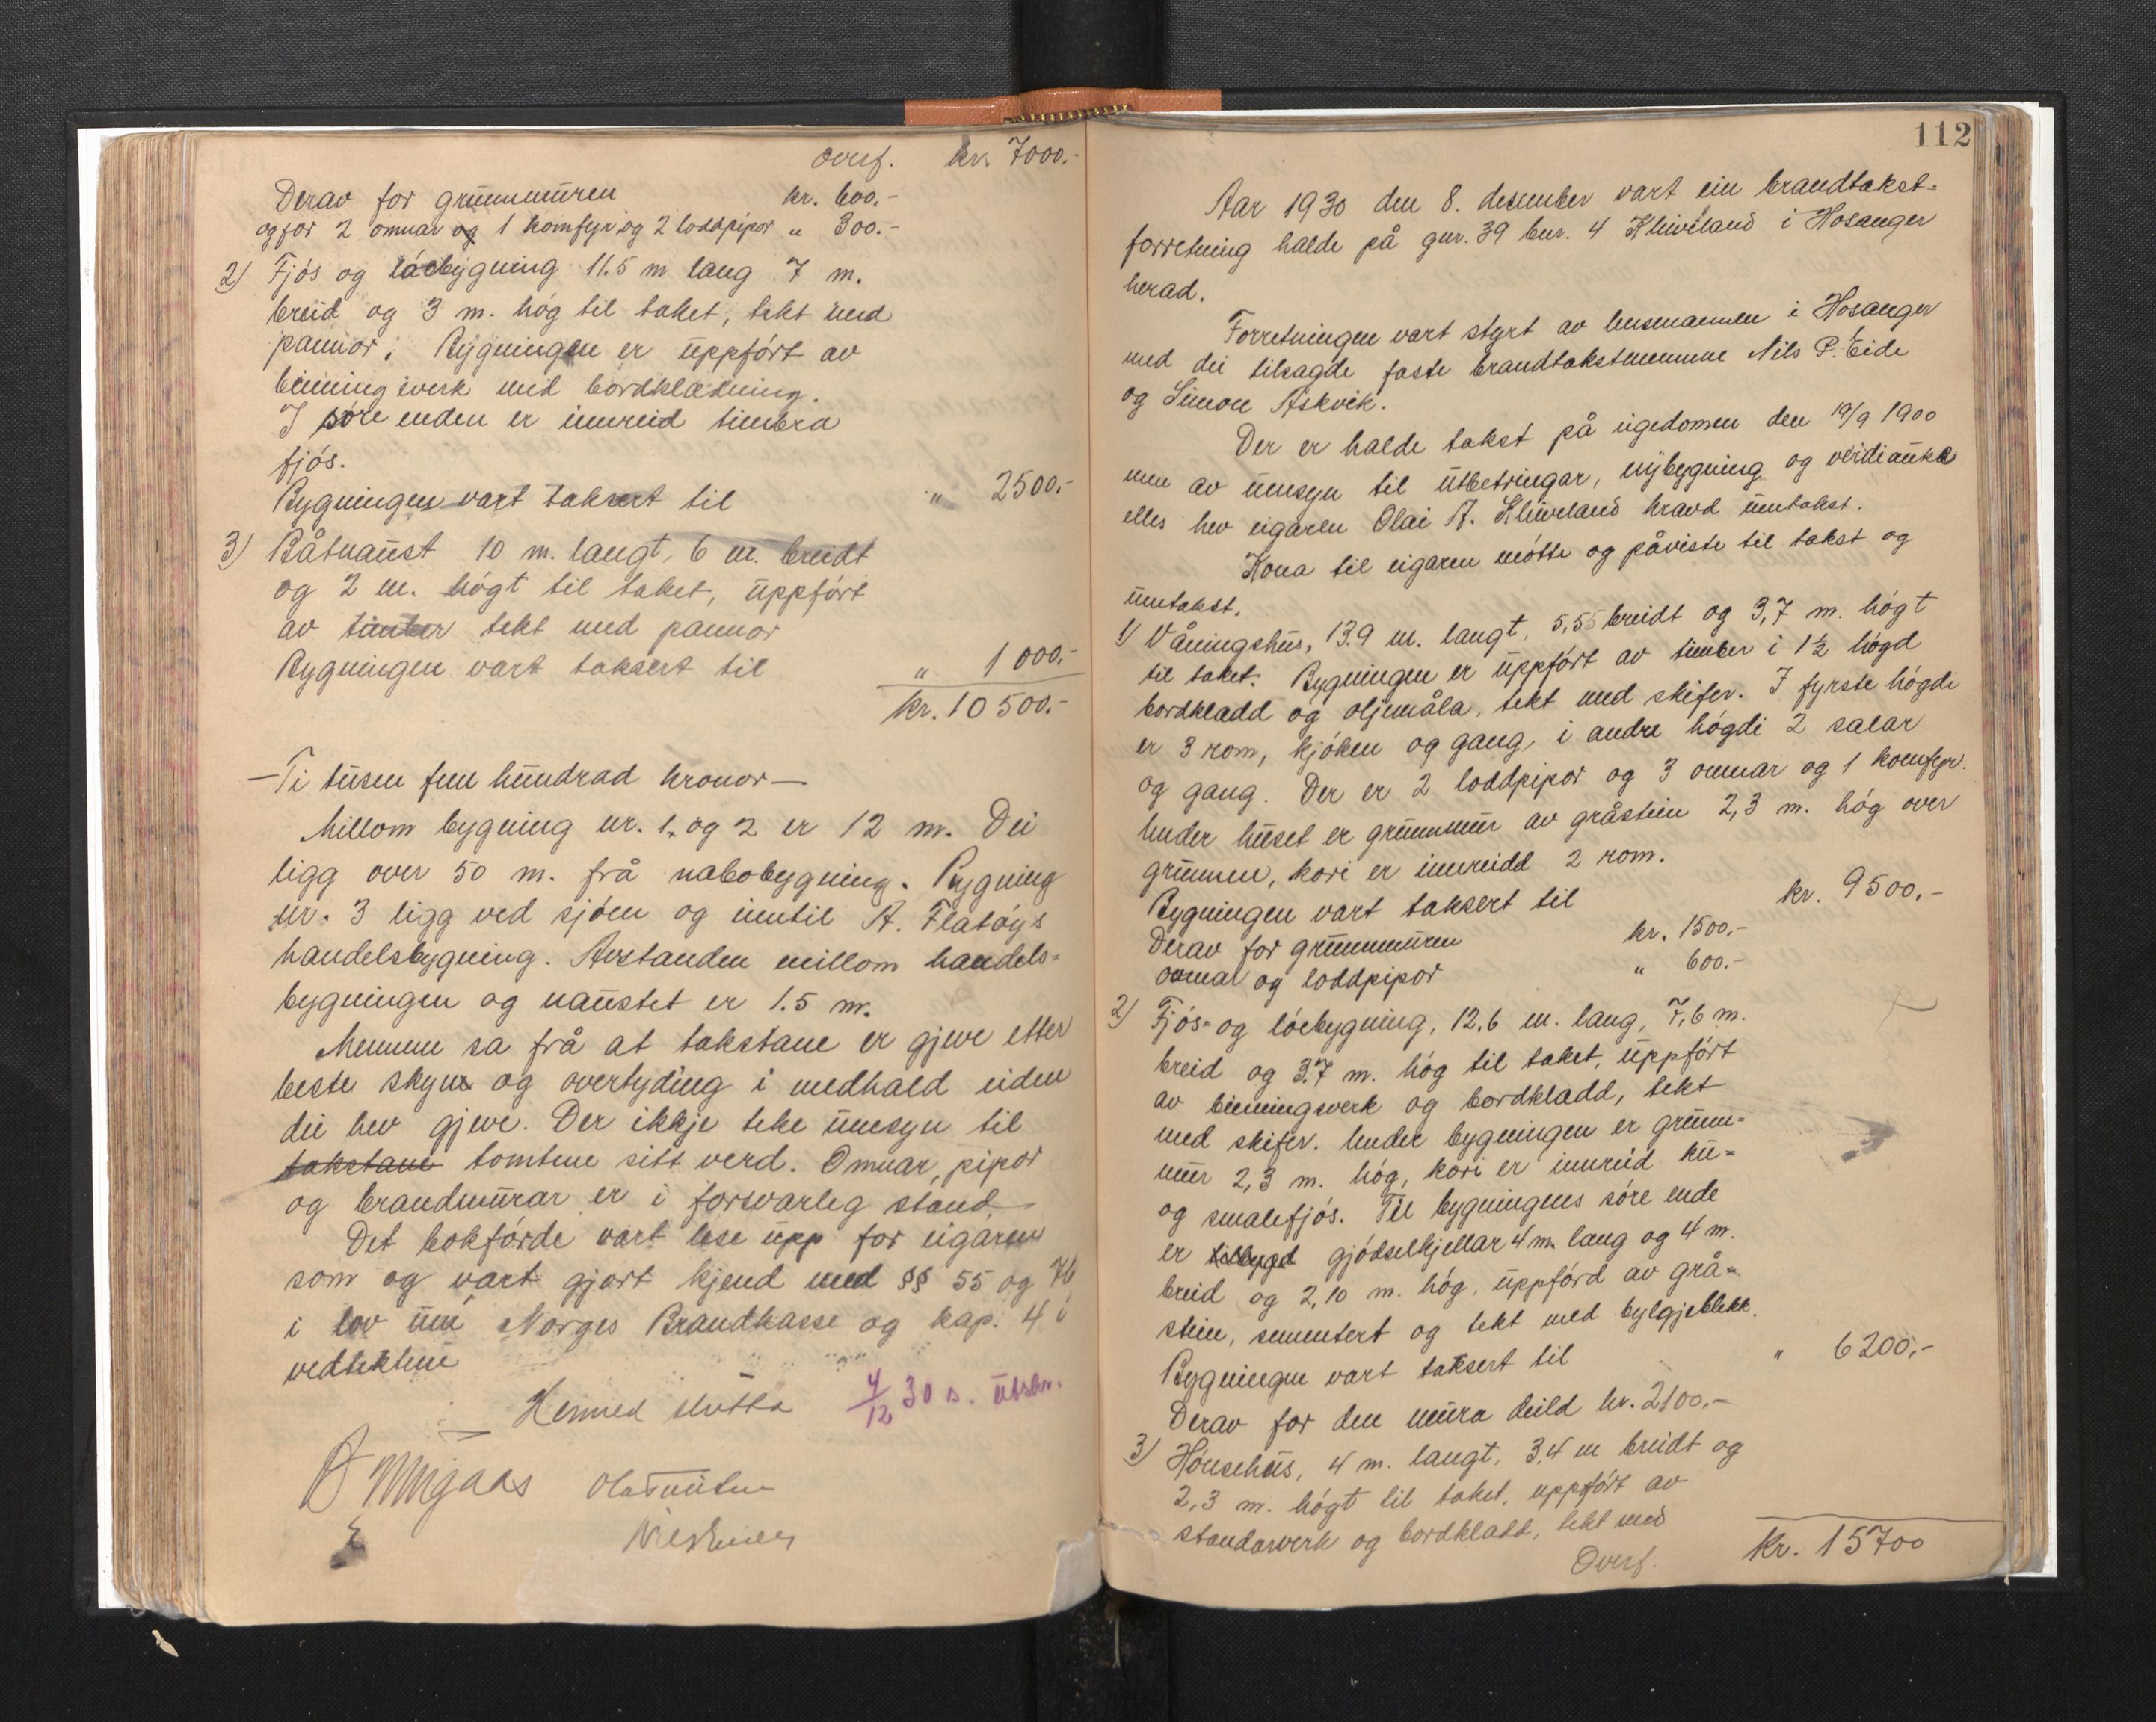 overf. kr. 7000.-
Derav for grunnmuren kr. 600.-
og for 2 omnar og 1 komfyr og 2 loddpipor " 300.-
2) Fjós og lóebygning 11.5 m lang 7 m.
breid og 3 m. hóg til taket, tekt med
pannor. Bygningen er uppfórt av
binningsverk med bordklædning.
I sóre enden er innreid timbra
fjós.
Bygningen vart taksert til " 2500.-
3) Båtnaust 10 m. langt, 6 m. breidt
og 2 m. högt til taket, uppfórt
av timber tekt med pannor
Bygningen vart taksert til " 1000.-
kr. 10500.-
- Ti tusen fem hundrad kronor -
Millom bygning nr. 1. og 2 er 12 m. Dei
ligg over 50 m. frå nabobygning. Bygning
nr. 3 ligg ved sjóen og inntil A. Flatóys
handelsbygning. Avstanden millom handels=
bygningen og naustet er 1.5 m.
Mennene sa frå at takstane er gjeve etter
beste skyn og overtyding i medhald eiden
dei hev gjeve. Der ikkje teke umsyn til
takstane tomtene sitt verd. Omnar, pipor
og brandmurar er i forsvarleg stand
Det bokfórde vart lese upp for eigaren
som og vart gjort kjend med §§ 55 og 76
i lov um Norges Brandkasse og kap. 4 i
vedtektene
Hermed slutta 4/12 30 s. utskr.
112
Aar 1930 den 8. desember vart ein brandtakst=
forretning halde på gnr. 39 bnr. 4 Kleiveland i Hosanger
herad.
Forretningen vart styrt av lensmannen i Hosanger
med dei tilsagde faste brandtakstmennene Nils P. Eide
og Simon Askvik.
Der er halde takst på eigedomen den 19/9 1900
men av umsyn til utbetringar, nybygning og verdiauke
elles hev eigaren Olai A. Kleiveland kravd umtakst.
Kona til eigaren mótte og påviste til takst og
umtakst.
1) Våningshus, 13.9 m. langt, 5,55 breidt og 3,7 m. högt
til taket. Bygningen er uppfórt av timber i 1½ högd
bordkladd og oljemåla, tekt med skifer. I fyrste högdi
er 3 rom, kjóken og gang, i andre högdi 2 salar
og gang. Der er 2 loddpipor og 3 omnar og 1 komfyr.
Under huset er grunnmur av gråstein 2,3 m. hóg over
grunnen, kori er innreidd 2 rom.
Bygningen vart taksert til kr. 9500,-
Derav for grunnmuren kr. 1500,-
omnar og loddpipor " 600.-
2) Fjós= og lóebygning, 12.6 m. lang, 7,6 m.
breid og 3.7 m. hóg til taket, uppfórt
av binningsverk og bordkladd, tekt
med skifer. Under bygningen er grunn=
mur 2,3 m. hóg, kori er innreid ku=
og smalefjós. Til bygningens sóre ende
er tilbygd gjódselkjellar 4 m. lang og 4 m.
breid og 2,10 m. hóg, uppförd av grå=
stein, sementert og tekt med bylgjeblekk.
Bygningen vart taksert til " 6200,-
Derav for den mura deild kr. 2100,-
3) Hónsehus, 4 m. langt, 3,4 m breidt og
2,3 m. högt til taket, uppfórt av
standarverk og bordkladd, tekt med
Overf. kr. 15700